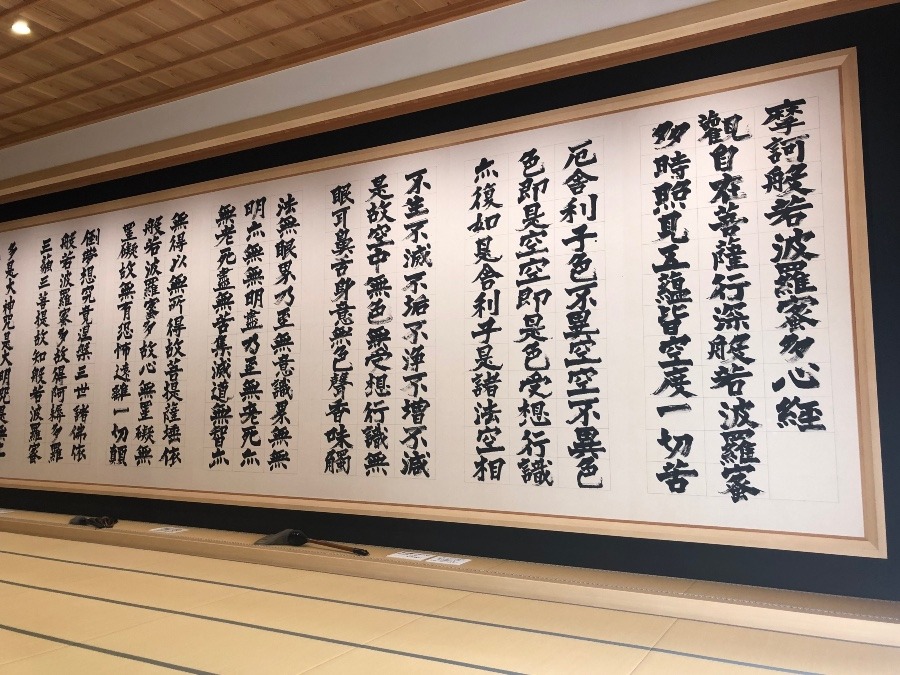 摩訶般若波羅蜜多心経
觀自在菩薩行深般若波羅蜜
多時照見五蘊皆空度一切苦
厄舎利子色不異空空不異色
色即是空空即是色受想行識
亦復如是舎利子是諸法空相
不生不滅不垢不浄不増不減
是故空中無色無受想行識無
眼耳鼻舌身意無色聲香味觸
法無眼界乃至無意識界無無
明亦無無明盡乃至無老死亦
無老死盡無苦集滅道無智亦
無得以無所得故菩提薩埵依
般若波羅蜜多故心無罣礙無
罣礙故無有恐怖遠離一切顛
倒夢想究竟涅槃三世諸佛依
般若波羅蜜多故得阿耨多羅
三藐三菩提故知般若波羅蜜
多是大神呪是大明呪是無上